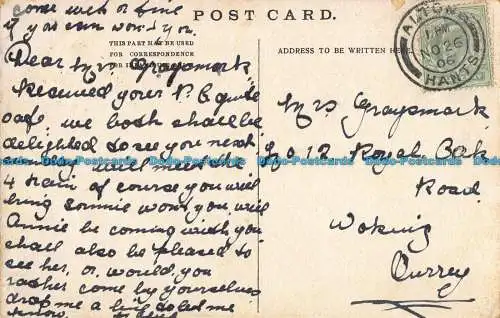 come wet or fine
if you can won't you.
POST CARD.
THIS PART MAY BE USED
FOR CORRESPONDENCE
ADDRESS TO BE WRITTEN HERE
ALTON
1 PM
NO 26
06
HANTS
Dear Mrs Graysmark
Received your P.C quite
safe. we both shall be
delighted to see you next
Sunday will meet the
4 train of course you will
bring Sonnie won't you will
Annie be coming with you
shall also be pleased to
see her, or, would you
rather come by yourselves
drop me a line to let me
know
Mrs Graysmark
C/o 12 Royal Oak
Road
Woking
Surrey
Dodo-Postcards Dodo-Postcards Dodo-Postcards Dodo-Postcards Dodo-Postcards